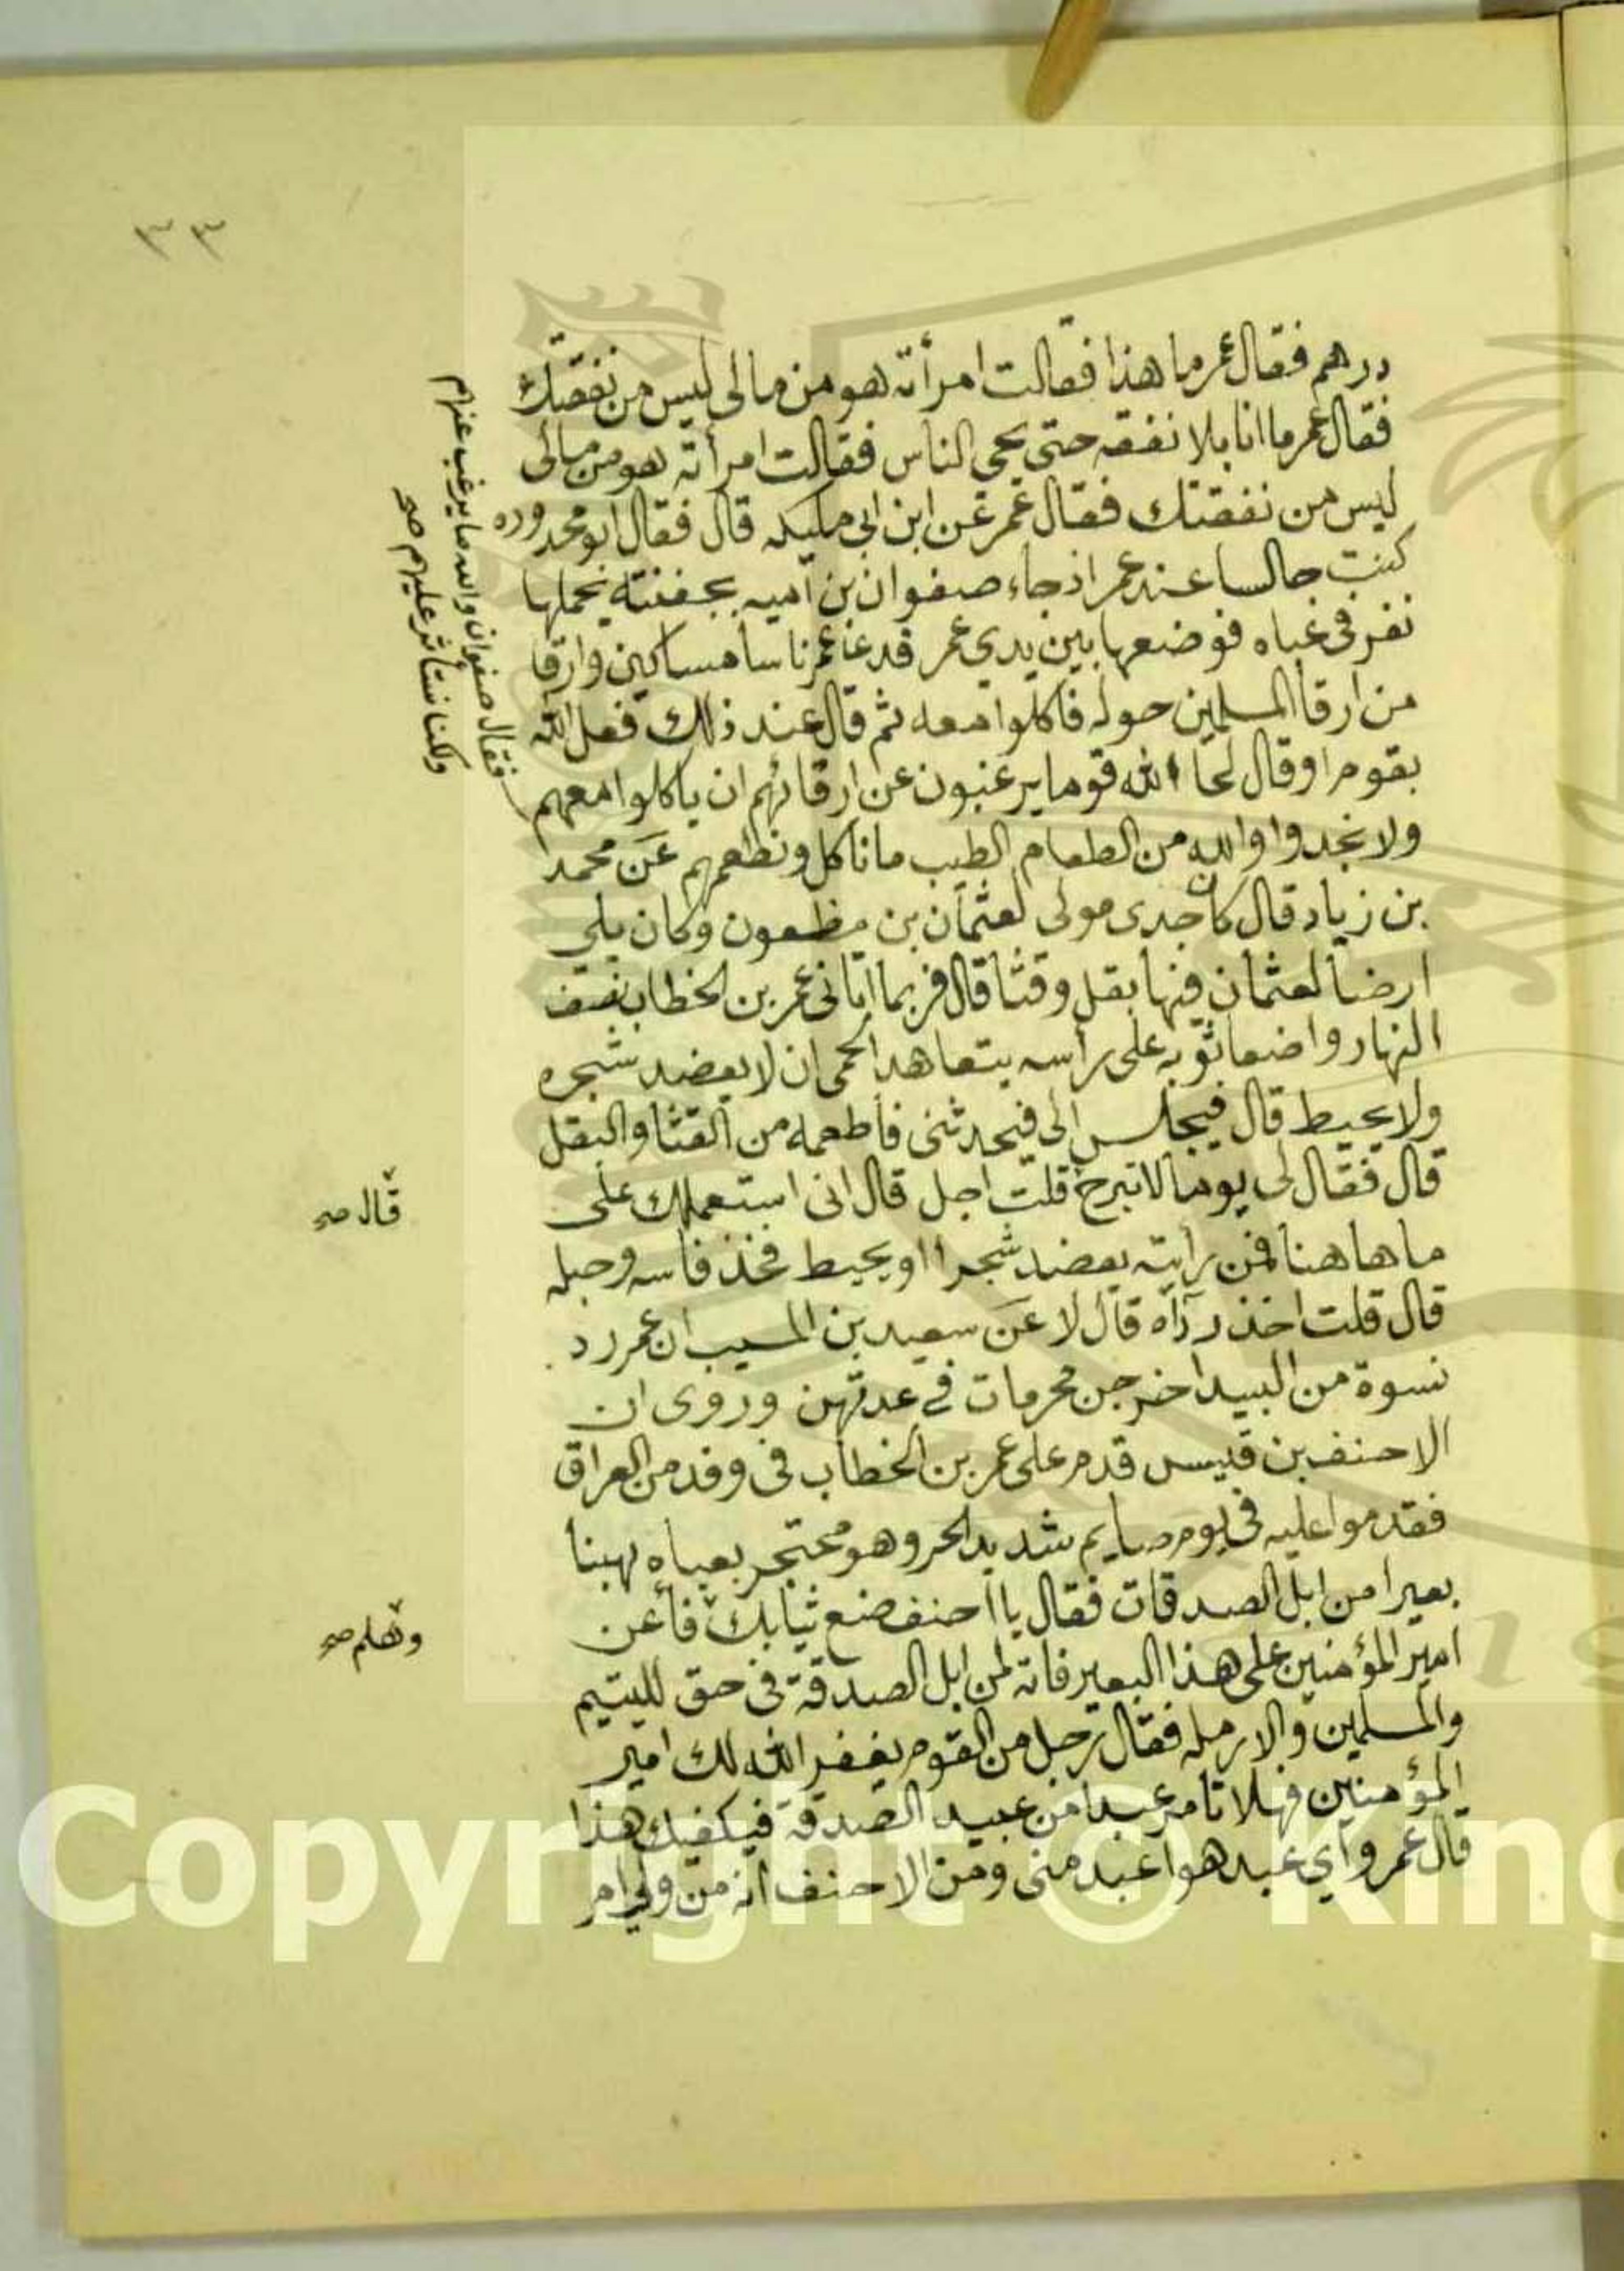 ٣٣
درهم فقال عمر ما هذا فقالت امرأته هو من مالى ليس من نفقتك
فقال عمر ما انا بلا نفقه حتى يحي الناس فقالت امرأته هو من مالى
ليس من نفقتك فقال عمر عن ابن ابي مليكه قال فقال ابو محذوره
كنت جالسا عند عمر اذ جاء صفوان بن اميه بجفنته يحملها
نفر فى عباه فوضعها بين يدي عمر فدعا عمر ناسا مساكين وارقا
من ارقا المسلمين حوله فاكلوا معه ثم قال عند ذلك فعل الله
بقوم اوقال لحا الله قوما يرغبون عن ارقائهم ان ياكلوا معهم
ولا نجدوا والله من الطعام الطيب ما ناكل ونطعمهم عن محمد
بن زياد قال كان جدى مولى لعثمان بن مظعون وكان يلي
ارضا لعثمان فيها بقل وقثا قال فربما اتانى عمر بن الخطاب نصف
النهار واضعا ثوبه على رأسه يتعاهد الحمى ان لا يعضد شجره
ولا يحيط قال فيجلس الى فيحدثنى فأطعمه من القثا والبقل
قال فقال لى يوما لا تبرح قلت اجل قال انى استعملك على
ما هاهنا فمن رايته يعضد شجرا او يحيط فخذ فاسه وحبله
قال قلت اخذ رداه قال لا عن سعيد بن المسيب ان عمر رد
نسوة من البيدا خرجن محرمات في عدتهن وروى ان
الاحنف بن قيس قدم على عمر بن الخطاب فى وفد من العراق
فقدموا عليه فى يوم صايم شديد الحر وهو محتجر بعباه يهنا
بعيرا من ابل الصدقات فقال يا احنف ضع ثيابك فأعن
امير المؤمنين على هذا البعير فانه لمن ابل الصدقة فى حق لليتيم
والمسلمين والارمله فقال رجل من القوم يغفر الله لك امير
المؤمنين فهلا تامر عبدا من عبيد الصدقة فيكفيك هذا
قال عمر وأي عبد هو اعبد منى ومن الاحنف انه من ولى امر
فقال صفوان والله ما يرغب عنهم
ولكنا نستأثر عليهم صح
قال صح
وتعلم صح
Copyright © King